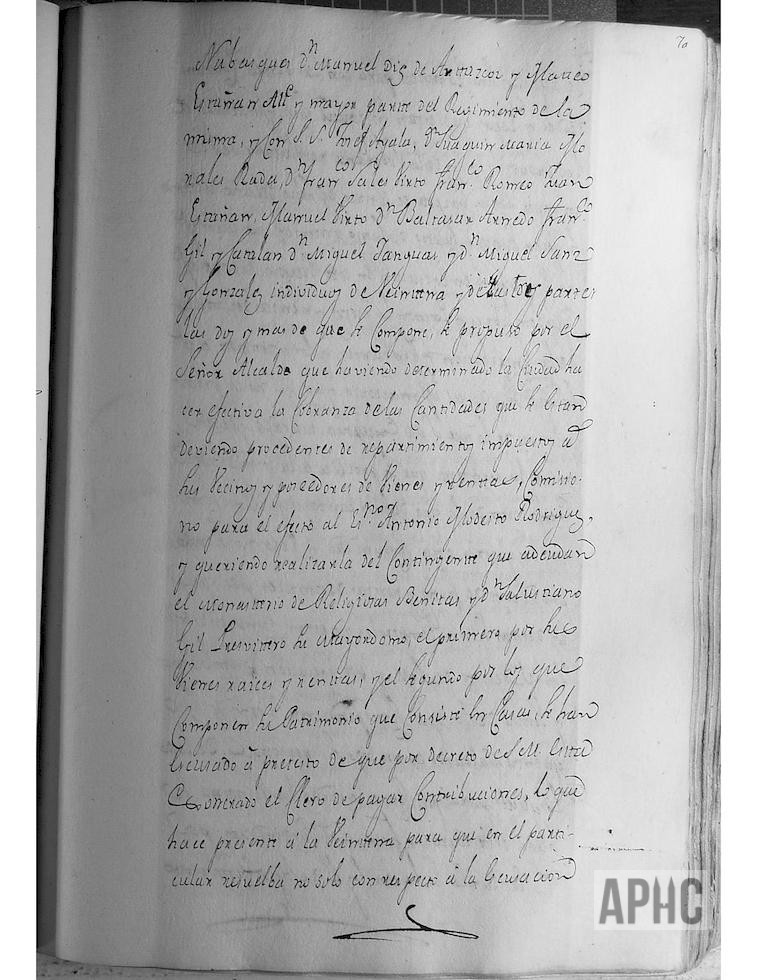 70
Nabasques dn. Manuel Diz de Antazcoz y Mateo
Estañan Alle. y mayor parte del Regimiento de la
misma, y Con S. S. Ayala, Dn. Juaquin Maria Mo
rales Rada, Dn. Franco. Sales Virto Franco. Romeo Juan
Estañan, Manuel Virto Dn. Baltasar Arnedo Franco.
Gil y Catalan dn. Miguel Tanguas y dn. Miguel Sanz
y Gonzalez individuos de Veintena y de las tres partes
las dos y mas de que se Compone, se propuso por el
Señor Alcalde que haviendo determinado la Ciudad ha
cer efectiva la Cobranza de las Cantidades que se estan
deviendo procedentes de repartimientos impuestos a
sus Vecinos y poseedores de Vienes y rentas, Comisio-
no para el efecto al Esno. Antonio Modesto Rodriguez,
y queriendo realizarla del Contingente que adeudan
el Monasterio de Religiosas Benitas y dn. Salustiano
Gil Presvitero su Mayordomo, el primero por sus
Vienes raices y rentas, y el segundo por los que
Componen su Patrimonio que Consiste en Casas, se han
escusado á pretesto de que por decreto de S. M. esta
Exonerado el Clero de pagar Contribuciones, lo que
hace presente á la Veintena para que en el parti-
cular resuelba no solo con respecto á la escusacion
APHC